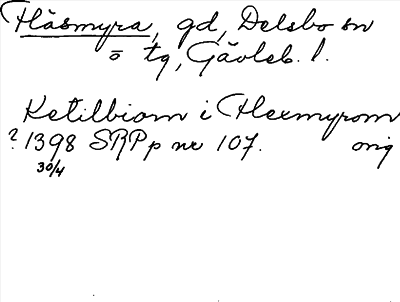 Häsmyra, gd, Delsbo sn
ö tg, Gävleb. l.
Ketilbiorn i Hexmyrom
? 1398 SRPp nr 107. orig
30/4